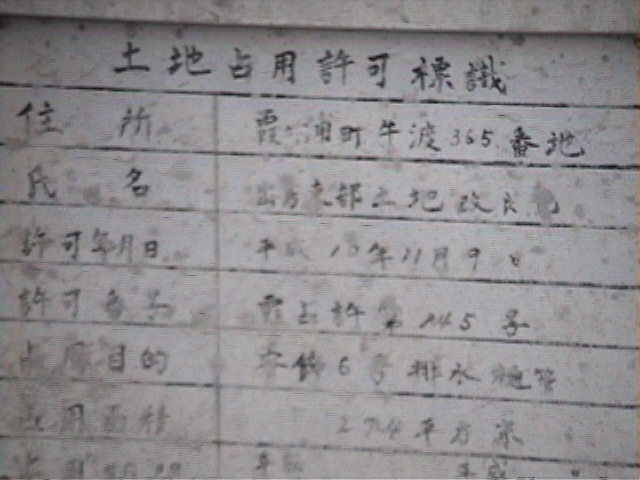 土地占用許可標識
住所 霞ヶ浦町牛渡365番地
氏名 出 東部土地改良
許可年月日 平成10年11月9日
許可番号 霞占許第245号
占用目的 6号排水樋管
占用面積 平方米
占用期間 平成 平成